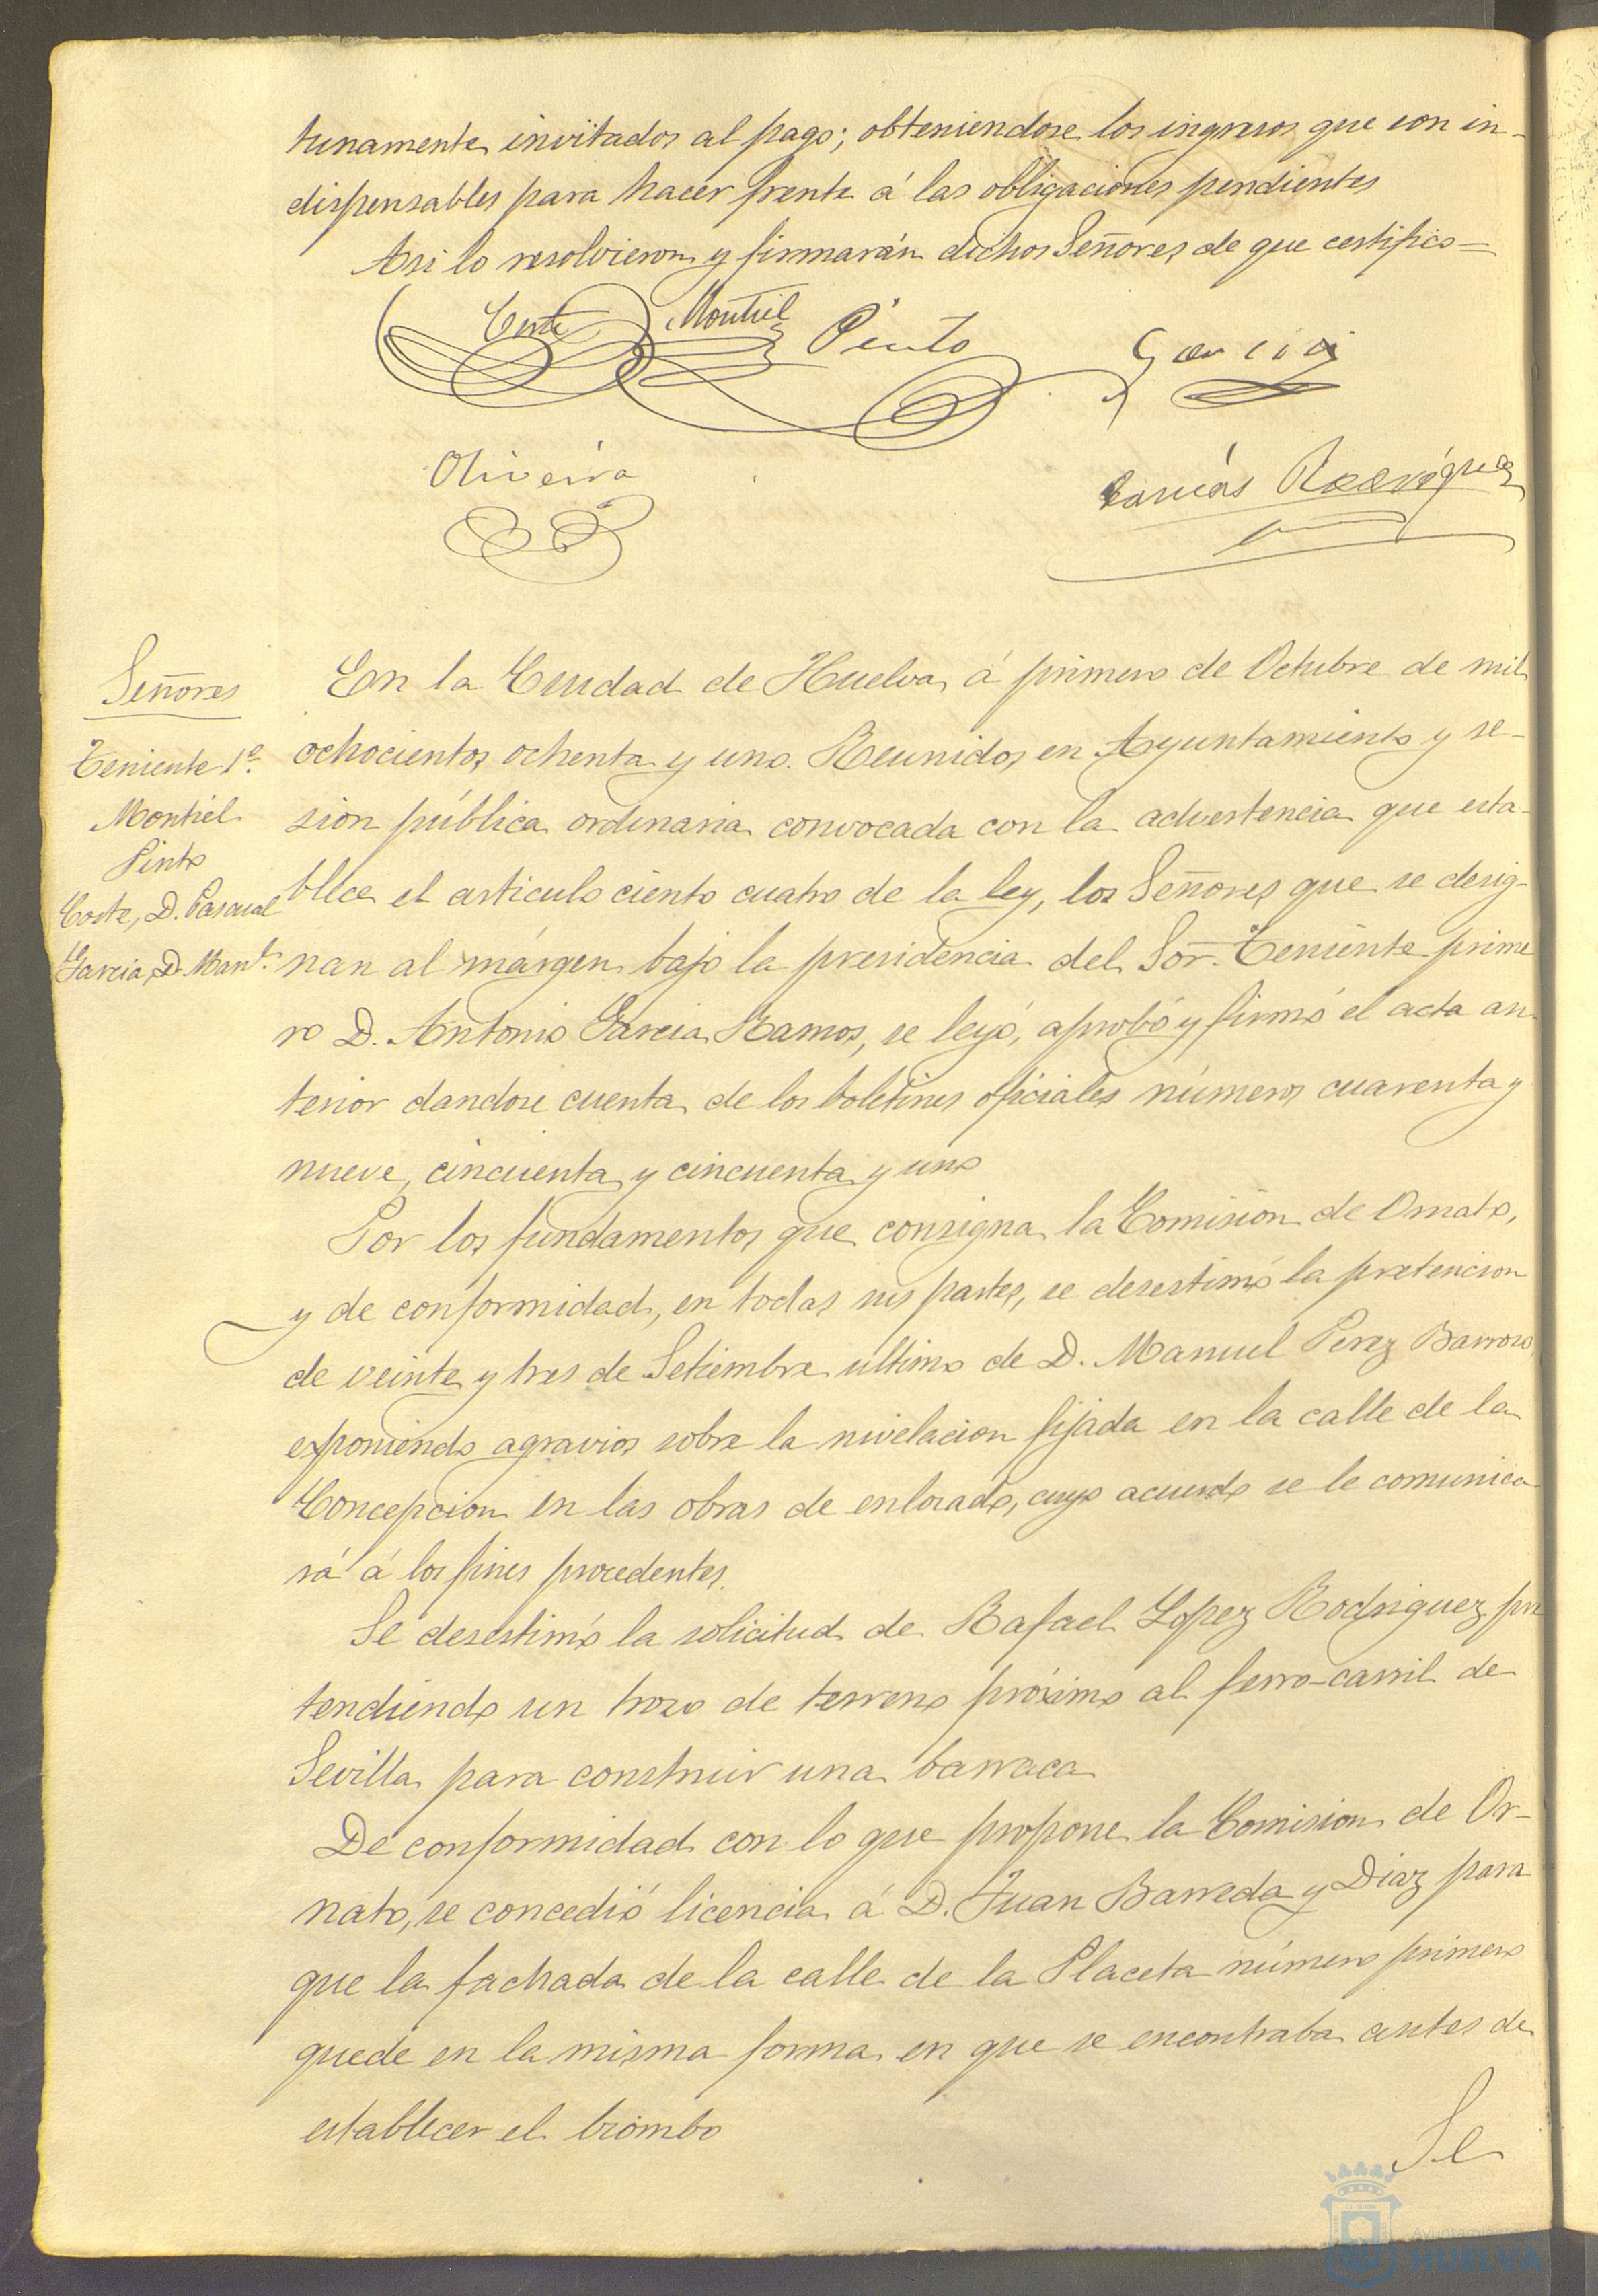 tunamente invitados al pago; obteniendose los ingresos que son in-
dispensables para hacer frente á las obligaciones pendientes
Asi lo resolvieron y firmarán dichos Señores de que certifico=
Corte Montiel Pinto Garcia
Oliveira Rodriguez
Señores
Teniente 1º
Montiel
Pinto
Corte, D. Pascual
Garcia, D. Manl.
En la Ciudad de Huelva á primero de Octubre de mil
ochocientos ochenta y uno. Reunidos en Ayuntamiento y se-
sion pública ordinaria convocada con la advertencia que esta-
blece el articulo ciento cuatro de la ley, los Señores que se desig-
nan al márgen bajo la presidencia del Sor. Teniente prime
ro D. Antonio Garcia Ramos, se leyó, aprobó y firmó el acta an-
terior dandose cuenta de los boletines oficiales números cuarenta y
nueve, cincuenta y cincuenta y uno
Por los fundamentos que consigna la Comision de Ornato,
y de conformidad, en todas sus partes, se desestimó la pretencion
de veinte y tres de Setiembre último de D. Manuel Perez Barroso,
exponiendo agravios sobre la nivelacion fijada en la calle de la
Concepcion en las obras de enlosado, cuyo acuerdo se le comunica
rá á los fines procedentes.
Se desestimó la solicitud de Rafael Lopez Rodriguez pre
tendiendo un trozo de terreno próximo al ferro-carril de
Sevilla para construir una barraca
De conformidad con lo que propone la Comision de Or-
nato, se concedió licencia á D. Juan Barreda y Diaz para
que la fachada de la calle de la Placeta número primero
quede en la misma forma en que se encontraba antes de
establecer el biombo
Se
Ayuntamiento
HUELVA